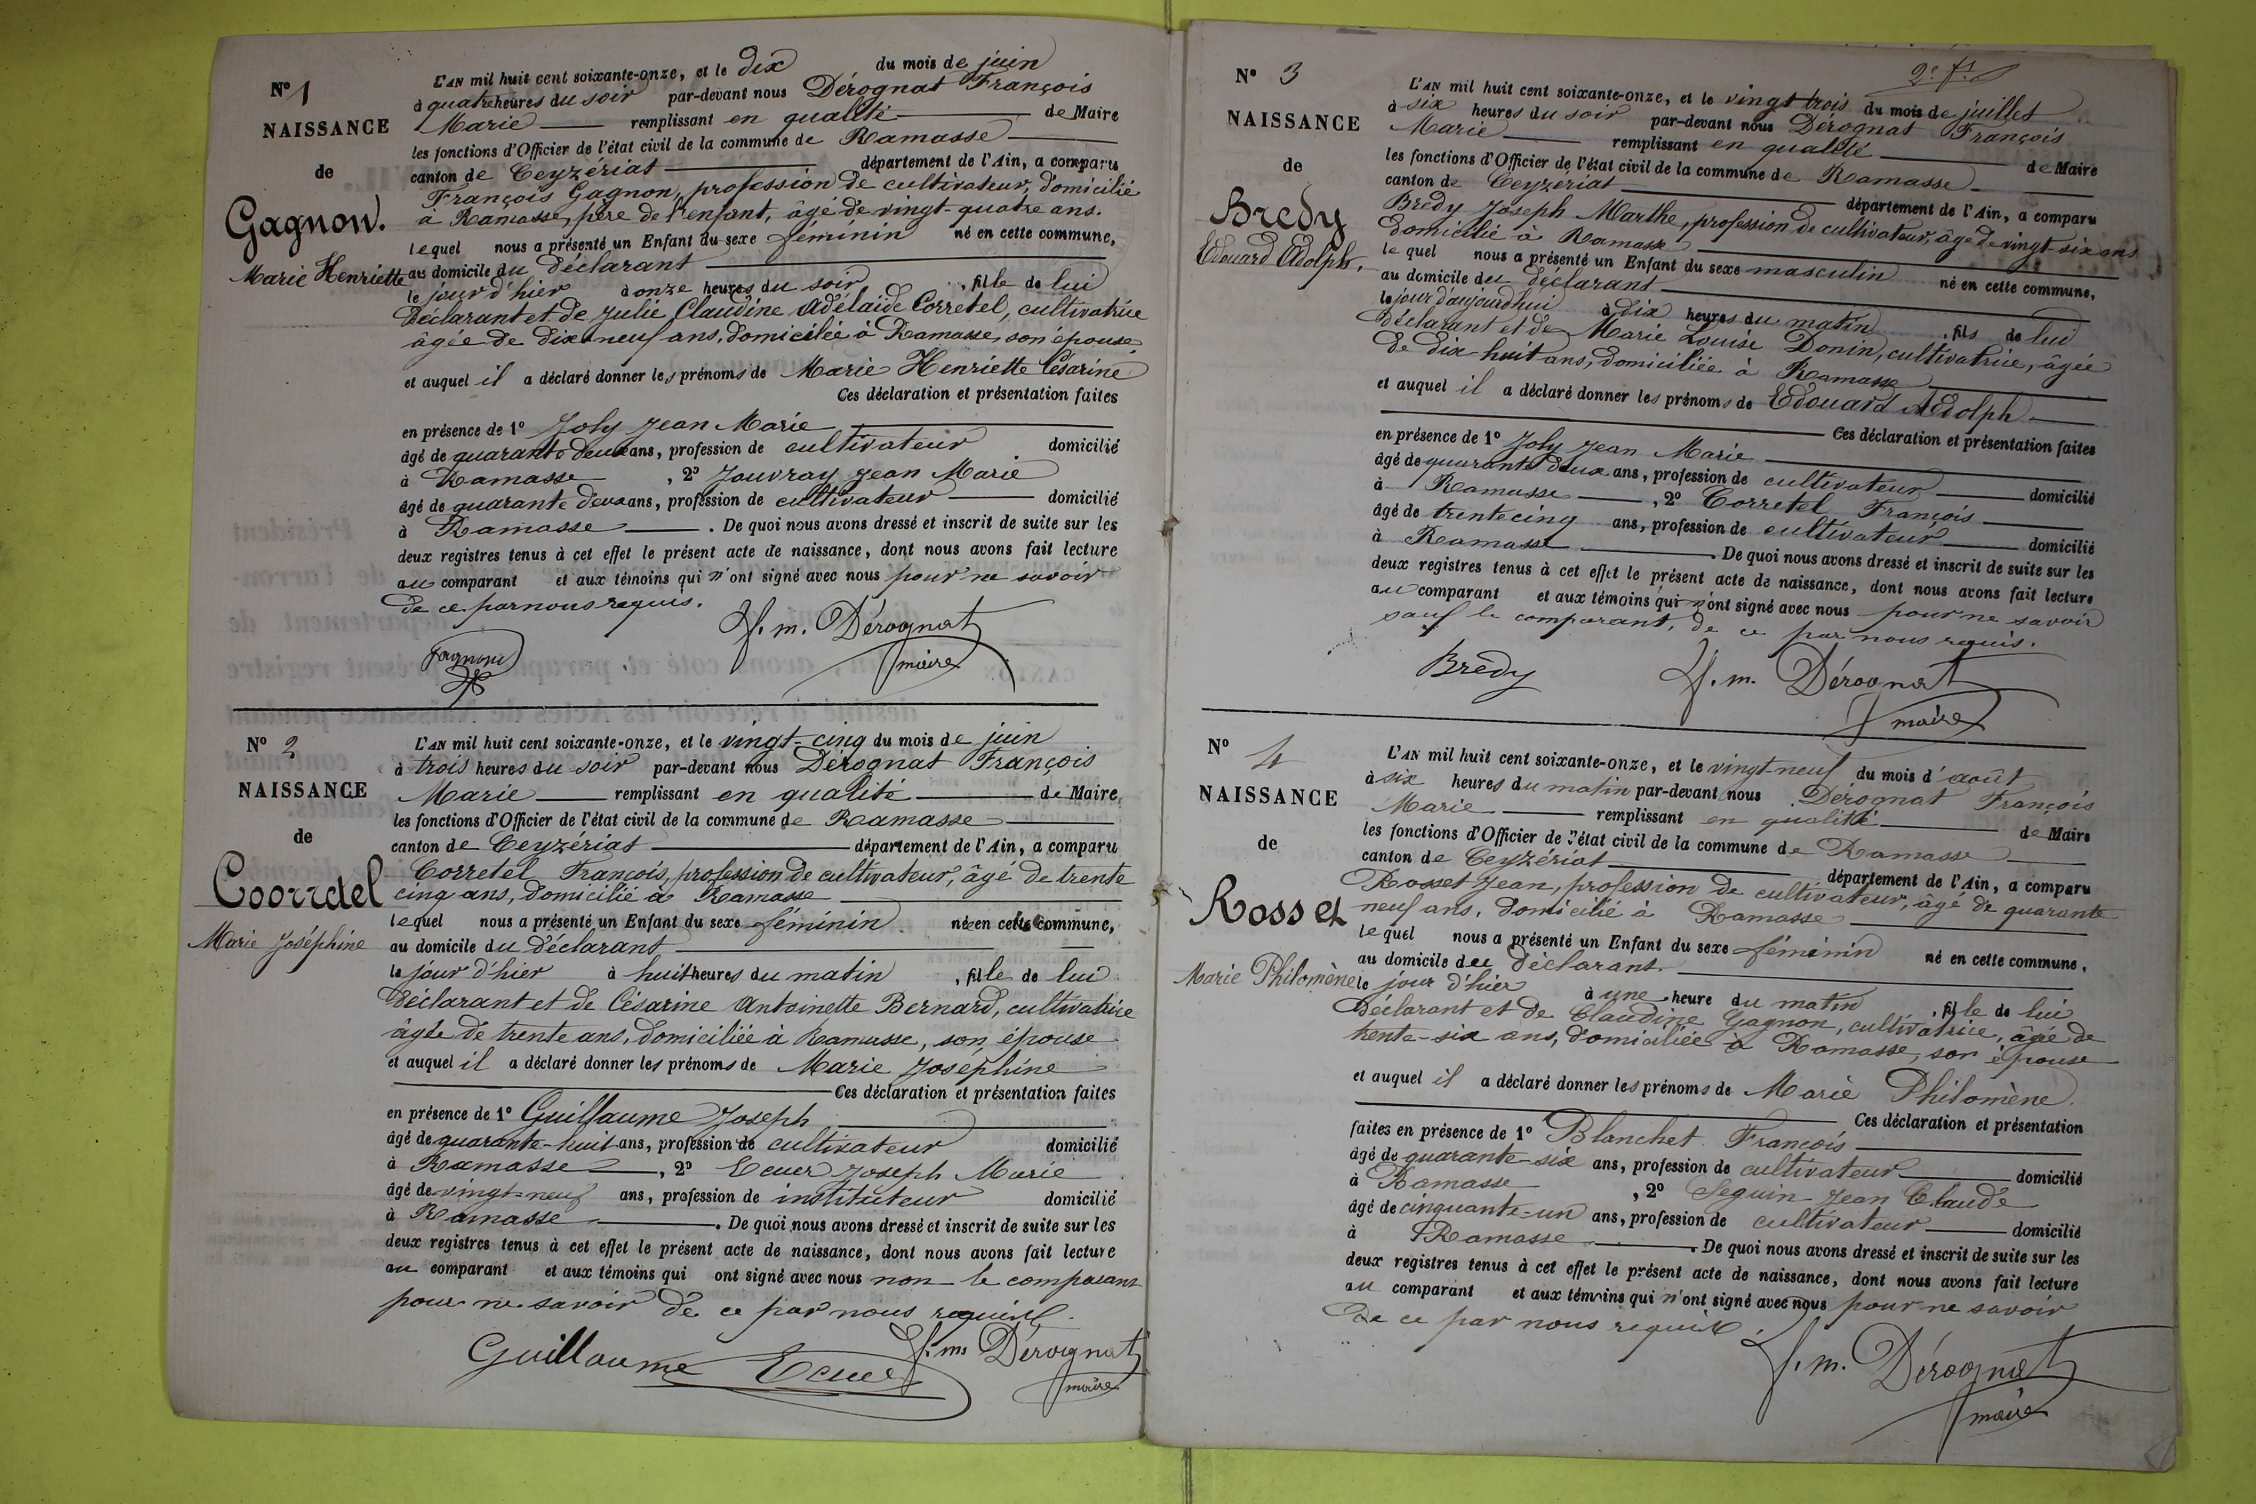 N° 1
NAISSANCE
de
Gagnon.
Marie Henriette
L'AN mil huit cent soixante-onze, et le dix du mois de juin
à quatre heures du soir par-devant nous Dérognat François
Marie remplissant en qualité de Maire
les fonctions d'Officier de l'état civil de la commune de Ramasse
canton de Ceyzériat département de l'Ain, a comparu
François Gagnon, profession de cultivateur, domicilié
à Ramasse, père de l'enfant, âgé de vingt-quatre ans.
lequel nous a présenté un Enfant du sexe féminin né en cette commune,
au domicile du déclarant
le jour d'hier à onze heures du soir, fille de lui
déclarant et de Julie Claudine Adélaïde Corretel, cultivatrice
âgée de dix neuf ans, domiciliée à Ramasse, son épouse
et auquel il a déclaré donner les prénoms de Marie Henriette Césarine
Ces déclaration et présentation faites
en présence de 1° Joly Jean Marie
âgé de quarante deux ans, profession de cultivateur domicilié
à Ramasse, 2° Jouvray Jean Marie
âgé de quarante deux ans, profession de cultivateur domicilié
à Ramasse. De quoi nous avons dressé et inscrit de suite sur les
deux registres tenus à cet effet le présent acte de naissance, dont nous avons fait lecture
au comparant et aux témoins qui n'ont signé avec nous pour ne savoir
de ce par nous requis.
Gagnon
f. m. Dérognat
maire
N° 2
NAISSANCE
de
Coorrdel
Marie Joséphine
L'AN mil huit cent soixante-onze, et le vingt-cinq du mois de juin
à trois heures du soir par-devant nous Dérognat François
Marie remplissant en qualité de Maire
les fonctions d'Officier de l'état civil de la commune de Ramasse
canton de Ceyzériat département de l'Ain, a comparu
Corretel François, profession de cultivateur, âgé de trente
cinq ans, domicilié à Ramasse
lequel nous a présenté un Enfant du sexe féminin née en cette commune,
au domicile du déclarant
le jour d'hier à huit heures du matin, fille de lui
déclarant et de Césarine Antoinette Bernard, cultivatrice
âgée de trente ans, domiciliée à Ramasse, son épouse
et auquel il a déclaré donner les prénoms de Marie Joséphine
Ces déclaration et présentation faites
en présence de 1° Guillaume Joseph
âgé de quarante-huit ans, profession de cultivateur domicilié
à Ramasse, 2° Ecuer Joseph Marie
âgé de vingt-neuf ans, profession de instituteur domicilié
à Ramasse. De quoi nous avons dressé et inscrit de suite sur les
deux registres tenus à cet effet le présent acte de naissance, dont nous avons fait lecture
au comparant et aux témoins qui ont signé avec nous non le comparant
pour ne savoir de ce par nous requis.
Guillaume Ecuer f. m. Dérognat
maire
2e ft
N° 3
NAISSANCE
de
Bredy
Edouard Adolph.
L'AN mil huit cent soixante-onze, et le vingt trois du mois de juillet
à six heures du soir par-devant nous Dérognat François
Marie remplissant en qualité de Maire
les fonctions d'Officier de l'état civil de la commune de Ramasse
canton de Ceyzériat département de l'Ain, a comparu
Bredy Joseph Marthe, profession de cultivateur, âgé de vingt-six ans
domicilié à Ramasse
lequel nous a présenté un Enfant du sexe masculin né en cette commune,
au domicile du déclarant
le jour d'aujourd'hui à dix heures du matin, fils de lui
déclarant et de Marie Louise Donin, cultivatrice, âgée
de dix-huit ans, domiciliée à Ramasse
et auquel il a déclaré donner les prénoms de Edouard Adolph
Ces déclaration et présentation faites
en présence de 1° Joly Jean Marie
âgé de quarante deux ans, profession de cultivateur domicilié
à Ramasse, 2° Corretel François
âgé de trente cinq ans, profession de cultivateur domicilié
à Ramasse. De quoi nous avons dressé et inscrit de suite sur les
deux registres tenus à cet effet le présent acte de naissance, dont nous avons fait lecture
au comparant et aux témoins qui n'ont signé avec nous pour ne savoir
sauf le comparant, de ce par nous requis.
Bredy
f. m. Dérognat
maire
N° 4
NAISSANCE
de
Rosset
Marie Philomène
L'AN mil huit cent soixante-onze, et le vingt-neuf du mois d'août
à six heures du matin par-devant nous Dérognat François
Marie remplissant en qualité de Maire
les fonctions d'Officier de l'état civil de la commune de Ramasse
canton de Ceyzériat département de l'Ain, a comparu
Rosset Jean, profession de cultivateur, âgé de quarante
neuf ans, domicilié à Ramasse
lequel nous a présenté un Enfant du sexe féminin né en cette commune,
au domicile du déclarant
le jour d'hier à une heure du matin, fille de lui
déclarant et de Claudine Gagnon, cultivatrice, âgée de
trente-six ans, domiciliée à Ramasse, son épouse
et auquel il a déclaré donner les prénoms de Marie Philomène.
Ces déclaration et présentation
faites en présence de 1° Blanchet François
âgé de quarante-six ans, profession de cultivateur domicilié
à Ramasse, 2° Seguin Jean Claude
âgé de cinquante-un ans, profession de cultivateur domicilié
à Ramasse. De quoi nous avons dressé et inscrit de suite sur les
deux registres tenus à cet effet le présent acte de naissance, dont nous avons fait lecture
au comparant et aux témoins qui n'ont signé avec nous pour ne savoir
de ce par nous requis.
f. m. Dérognat
maire